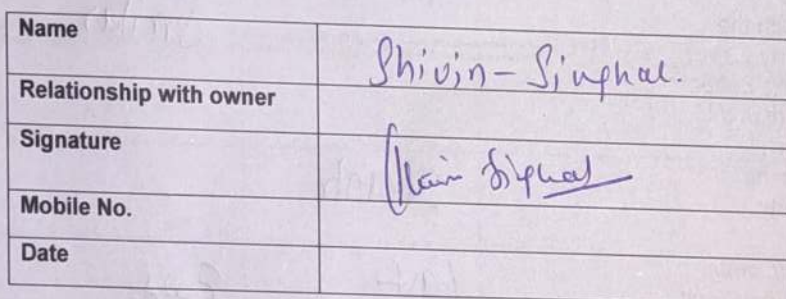 Name Shivin - Singhal.
Relationship with owner
Signature Singhal
Mobile No.
Date